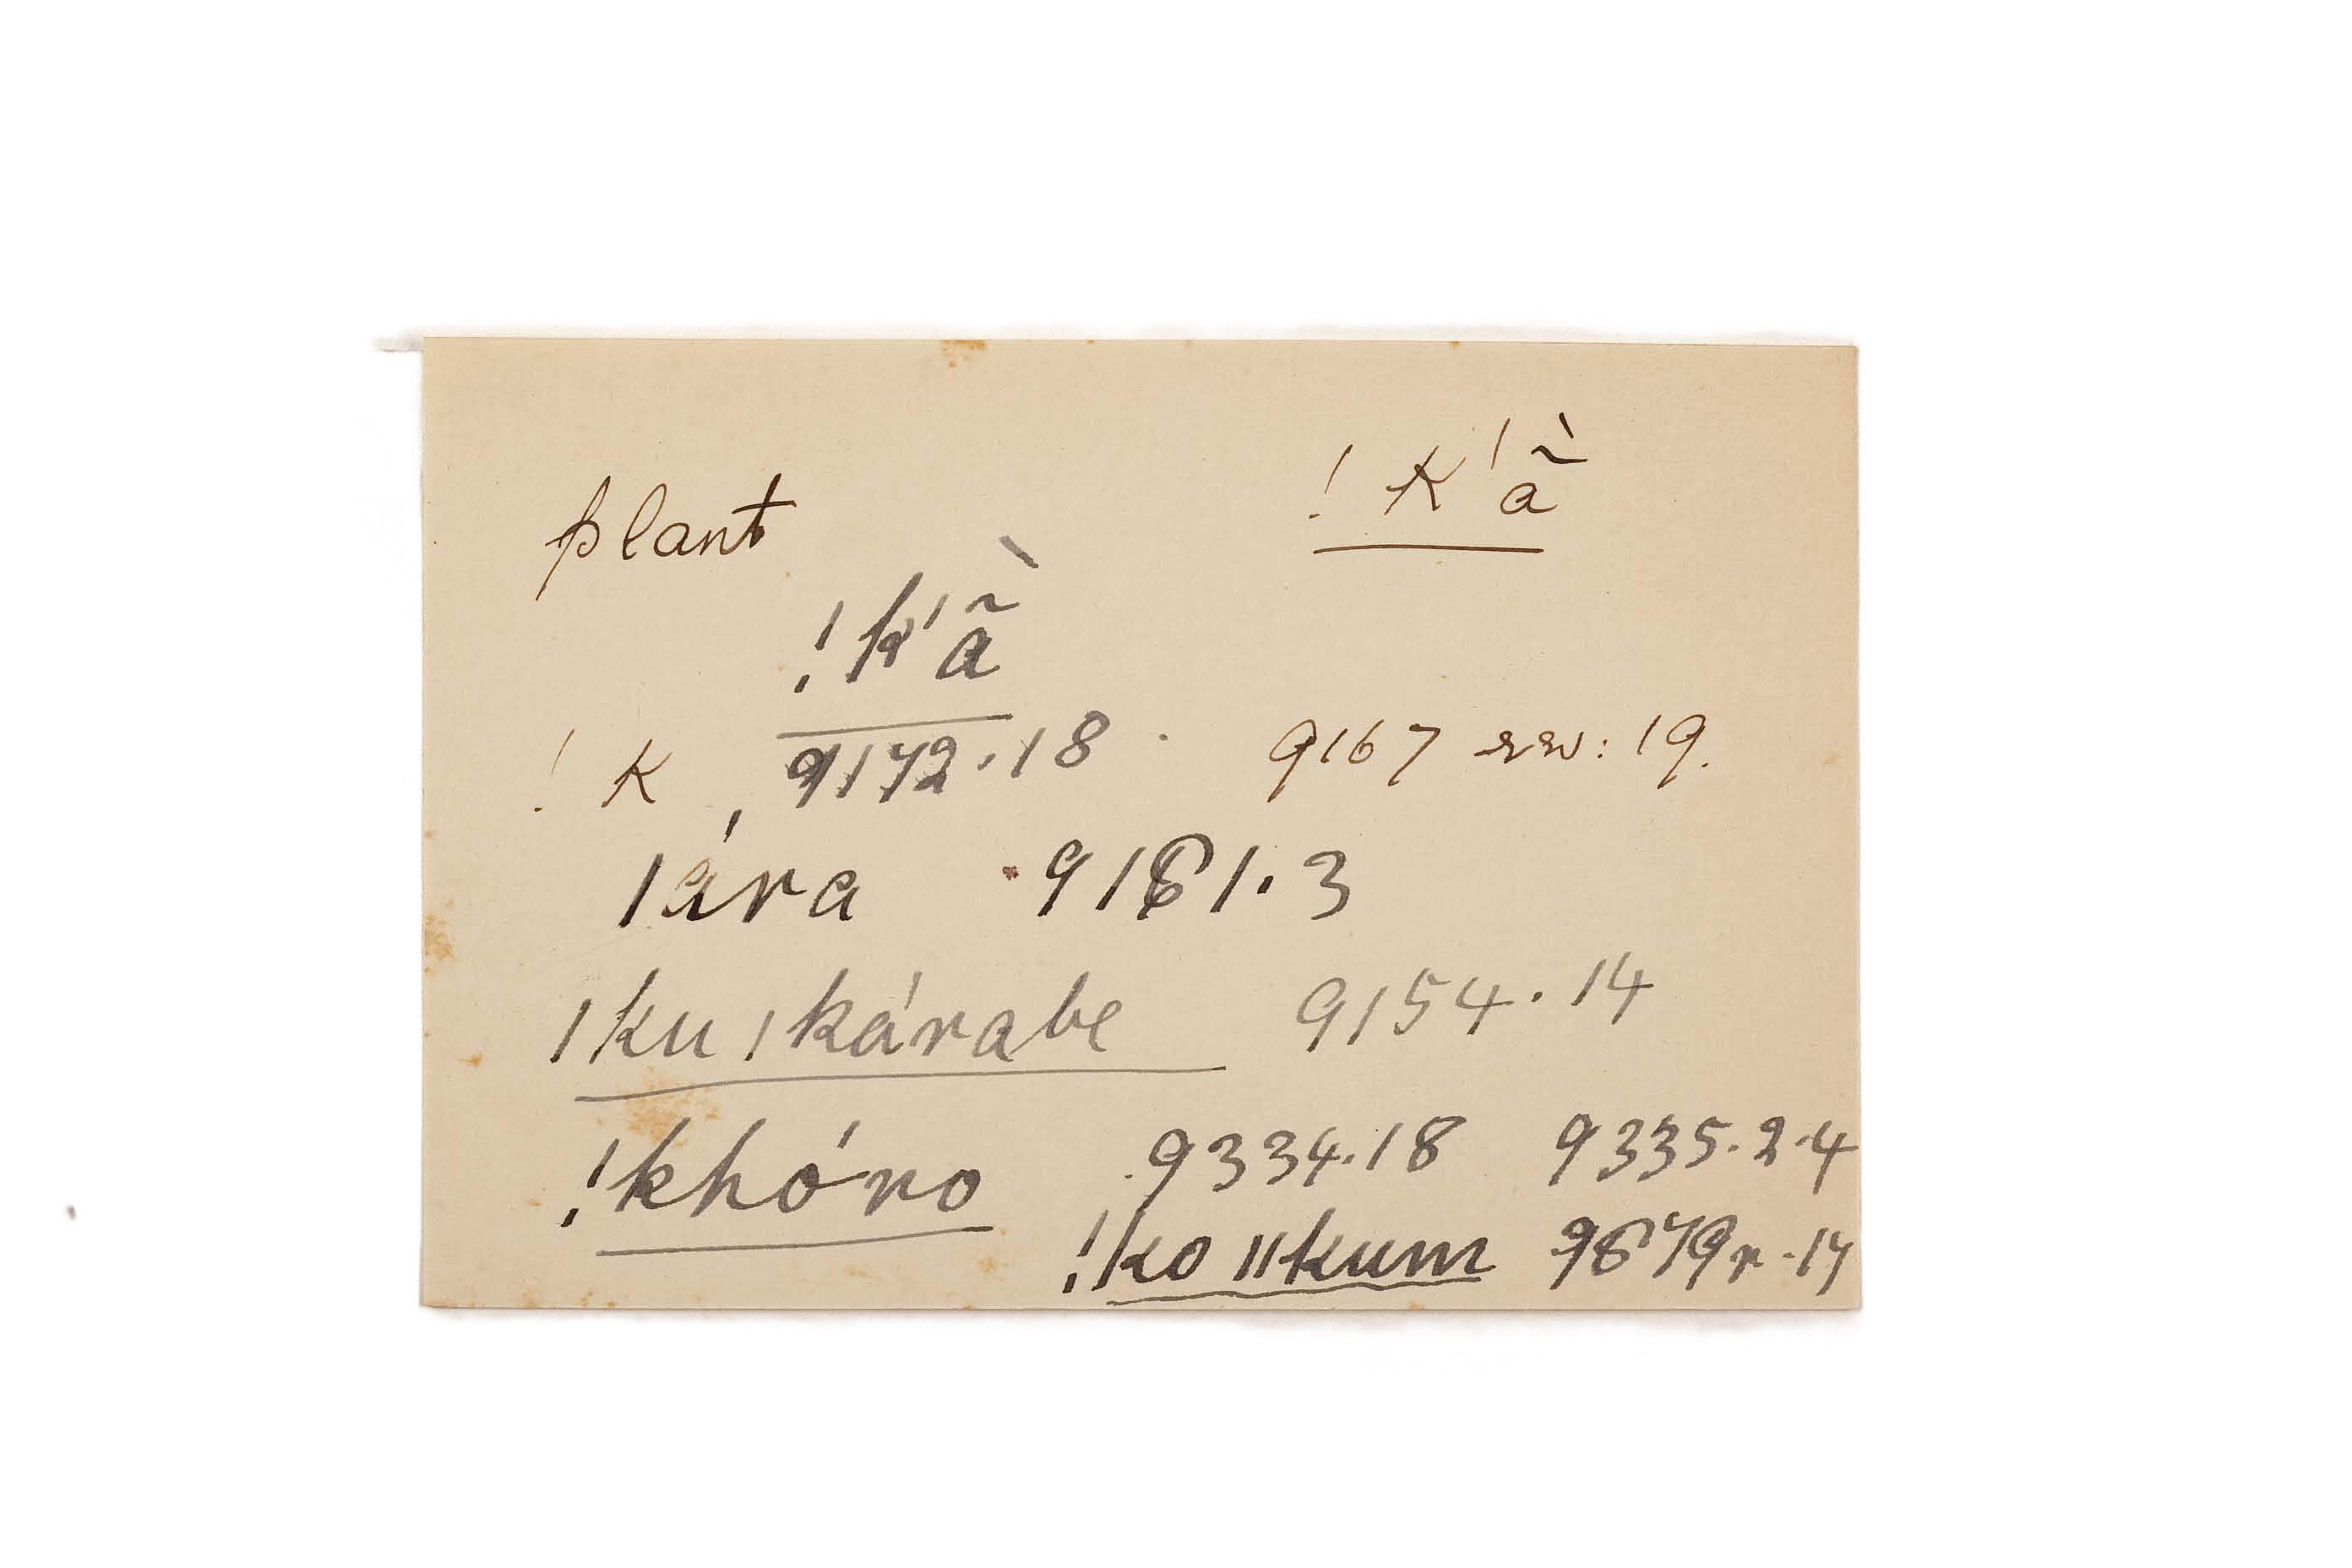 plant !k'ã̀
!k'ã̀
!k 9172.18. 9167 rev: 19.
|ára 9161.3
|ku|kárabe 9154.14
!khóro 9334.18 9335.2.4
!ko ||kum 9679r.17